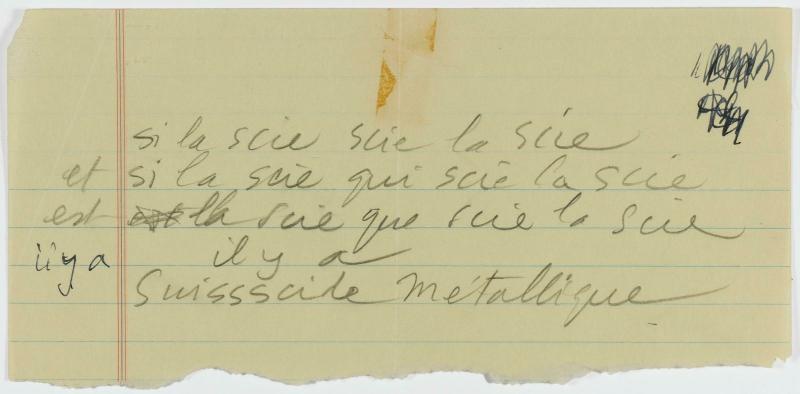 si la scie scie la scie
et si la scie qui scie la scie
est la scie que scie la scie
il y a il y a
Suissscide Métallique